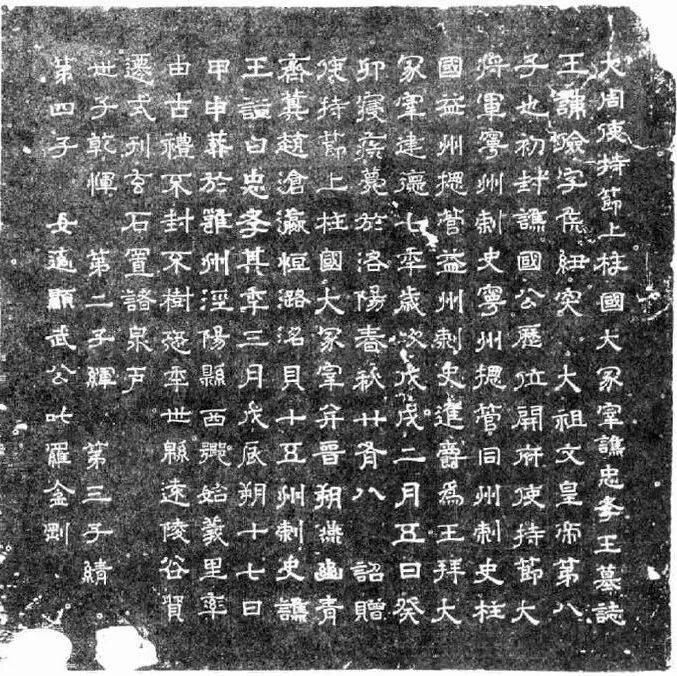 大周使持節上柱國大冢宰譙忠孝王墓誌
王諱儉字侯紐突 大祖文皇帝第八
子也初封譙國公歷位開府使持節大
將軍寧州刺史寧州揔管同州刺史柱
國益州揔管益州刺史進爵為王拜大
冢宰建德七年歲次戊戌二月五日癸
卯寢疾薨於洛陽春秋廿有八 詔贈
使持節上柱國大冢宰并晉朔燕幽青
齊冀趙滄瀛恒潞洺貝十五州刺史譙
王謚曰忠孝其年三月戊辰朔十七日
甲申葬於雍州涇陽縣西鄉始義里率
由古禮不封不樹恐年世緜遠陵谷貿
遷式刊玄石置諸泉戶
世子乾惲 第二子繟 第三子績
第四子 女適顯武公叱羅金剛